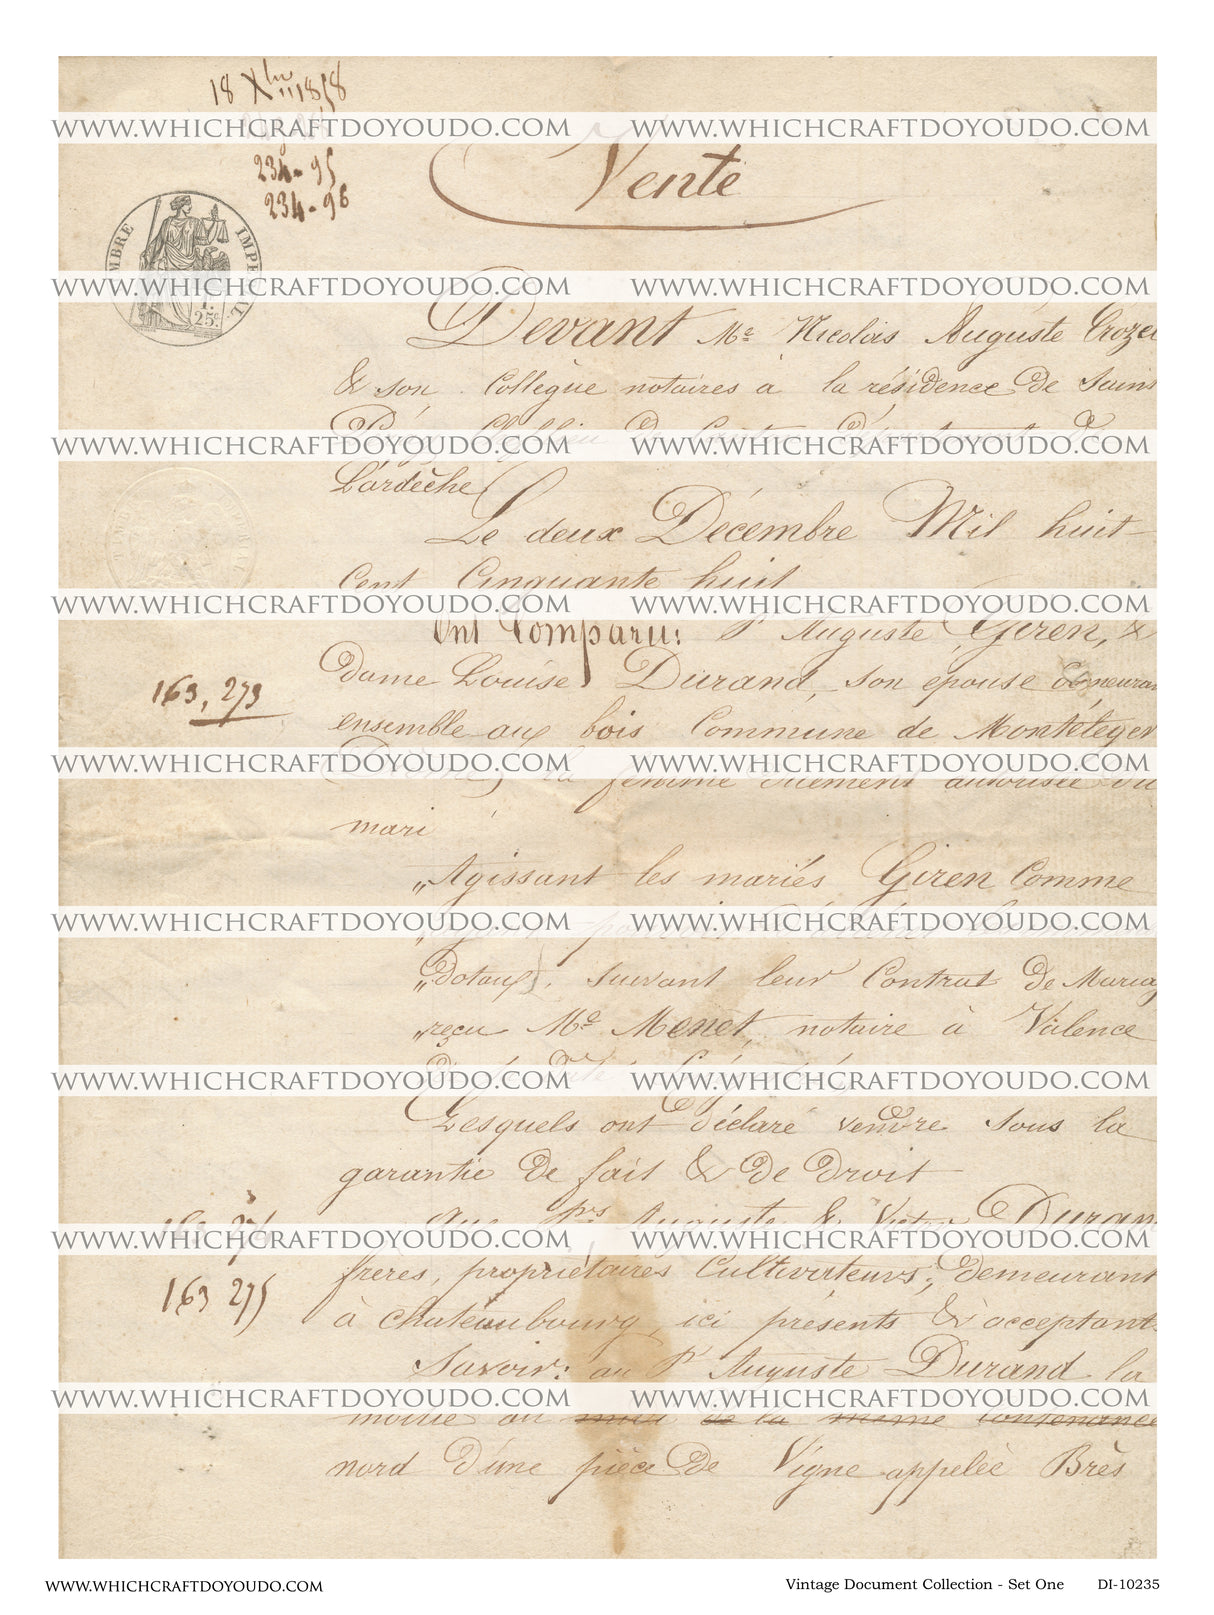 18 Xbre 1858
234-95
234-96
Vente
TIMBRE IMPERIAL
1.
25c.
Devant Me Nicolas Auguste Crozet
& son Collègue notaires à la résidence de Saint
L'ardèche
Le deux Décembre Mil huit
Cent Cinquante huit
Ont Comparu: Sr Auguste Giren, &
163, 273
dame Louise Durand, son epouse demeurant
ensemble aux bois Commune de Monteleger
la femme duement autorisée du
mari
„Agissant les mariés Giren Comme
„dotaux), suivant leur Contrat de Mariag
„reçu Me Menet, notaire à Valence
Lesquels ont déclaré vendre sous la
garantie de fait & de droit
163 276
Aux Srs Auguste & Victor Durand
frères, propriétaires Cultivateurs, demeurant
163 275
à chateaubourg, ici présents & acceptant
Savoir: au Sr Auguste Durand la
moitié au de la meme Contenance
nord d'une pièce de Vigne appelée Brès
WWW.WHICHCRAFTDOYOUDO.COM WWW.WHICHCRAFTDOYOUDO.COM
WWW.WHICHCRAFTDOYOUDO.COM WWW.WHICHCRAFTDOYOUDO.COM
WWW.WHICHCRAFTDOYOUDO.COM WWW.WHICHCRAFTDOYOUDO.COM
WWW.WHICHCRAFTDOYOUDO.COM WWW.WHICHCRAFTDOYOUDO.COM
WWW.WHICHCRAFTDOYOUDO.COM WWW.WHICHCRAFTDOYOUDO.COM
WWW.WHICHCRAFTDOYOUDO.COM WWW.WHICHCRAFTDOYOUDO.COM
WWW.WHICHCRAFTDOYOUDO.COM WWW.WHICHCRAFTDOYOUDO.COM
WWW.WHICHCRAFTDOYOUDO.COM WWW.WHICHCRAFTDOYOUDO.COM
WWW.WHICHCRAFTDOYOUDO.COM WWW.WHICHCRAFTDOYOUDO.COM
WWW.WHICHCRAFTDOYOUDO.COM Vintage Document Collection - Set One DI-10235